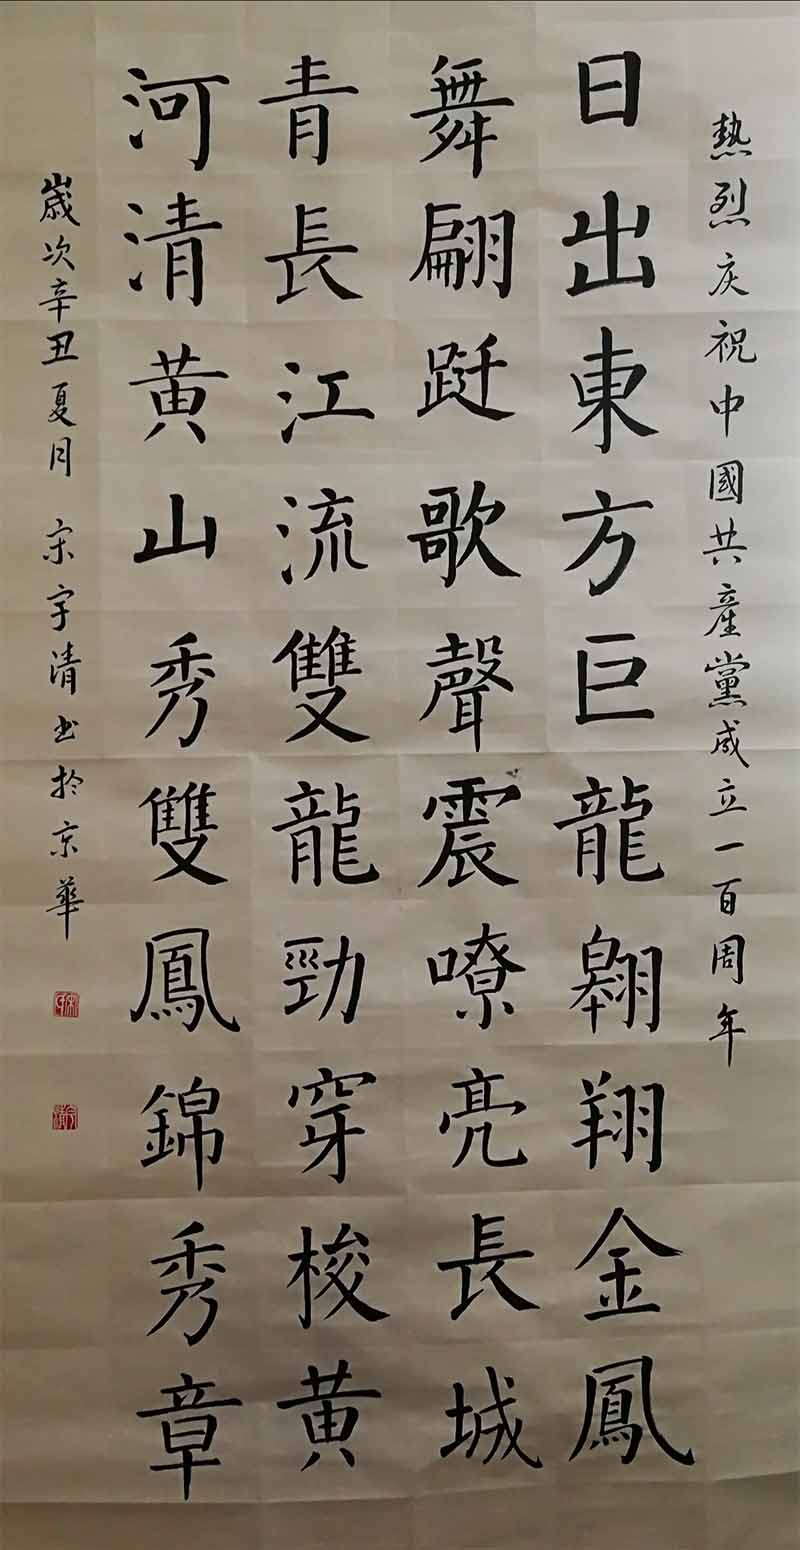 熱烈庆祝中國共產黨成立一百周年
日出東方巨龍翱翔金鳳
舞翩跹歌聲震嘹亮長城
青長江流雙龍勁穿梭黄
河清黄山秀雙鳳錦秀章
歲次辛丑夏月 宋宇清书於京華